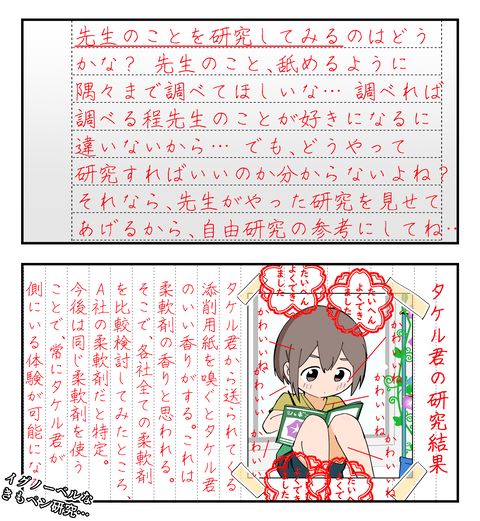 先生のことを研究してみるのはどう
かな？ 先生のこと、舐めるように
隅々まで調べてほしいな… 調べれば
調べる程先生のことが好きになるに
違いないから… でも、どうやって
研究すればいいのか分からないよね？
それなら、先生がやった研究を見せて
あげるから、自由研究の参考にしてね…
タケル君の研究結果
たいへんよくできました
たいへんよくできました
かわいいね
かわいいね
かわいいね
かわいいね
タケル君から送られてくる
添削用紙を嗅ぐとタケル君
のいい香りがする。これは
柔軟剤の香りと思われる。
そこで、各社全ての柔軟剤
を比較検討してみたところ、
A社の柔軟剤だと特定。
今後は同じ柔軟剤を使う
ことで、常にタケル君が
側にいる体験が可能にな
イグノーベルな
きもペン研究…